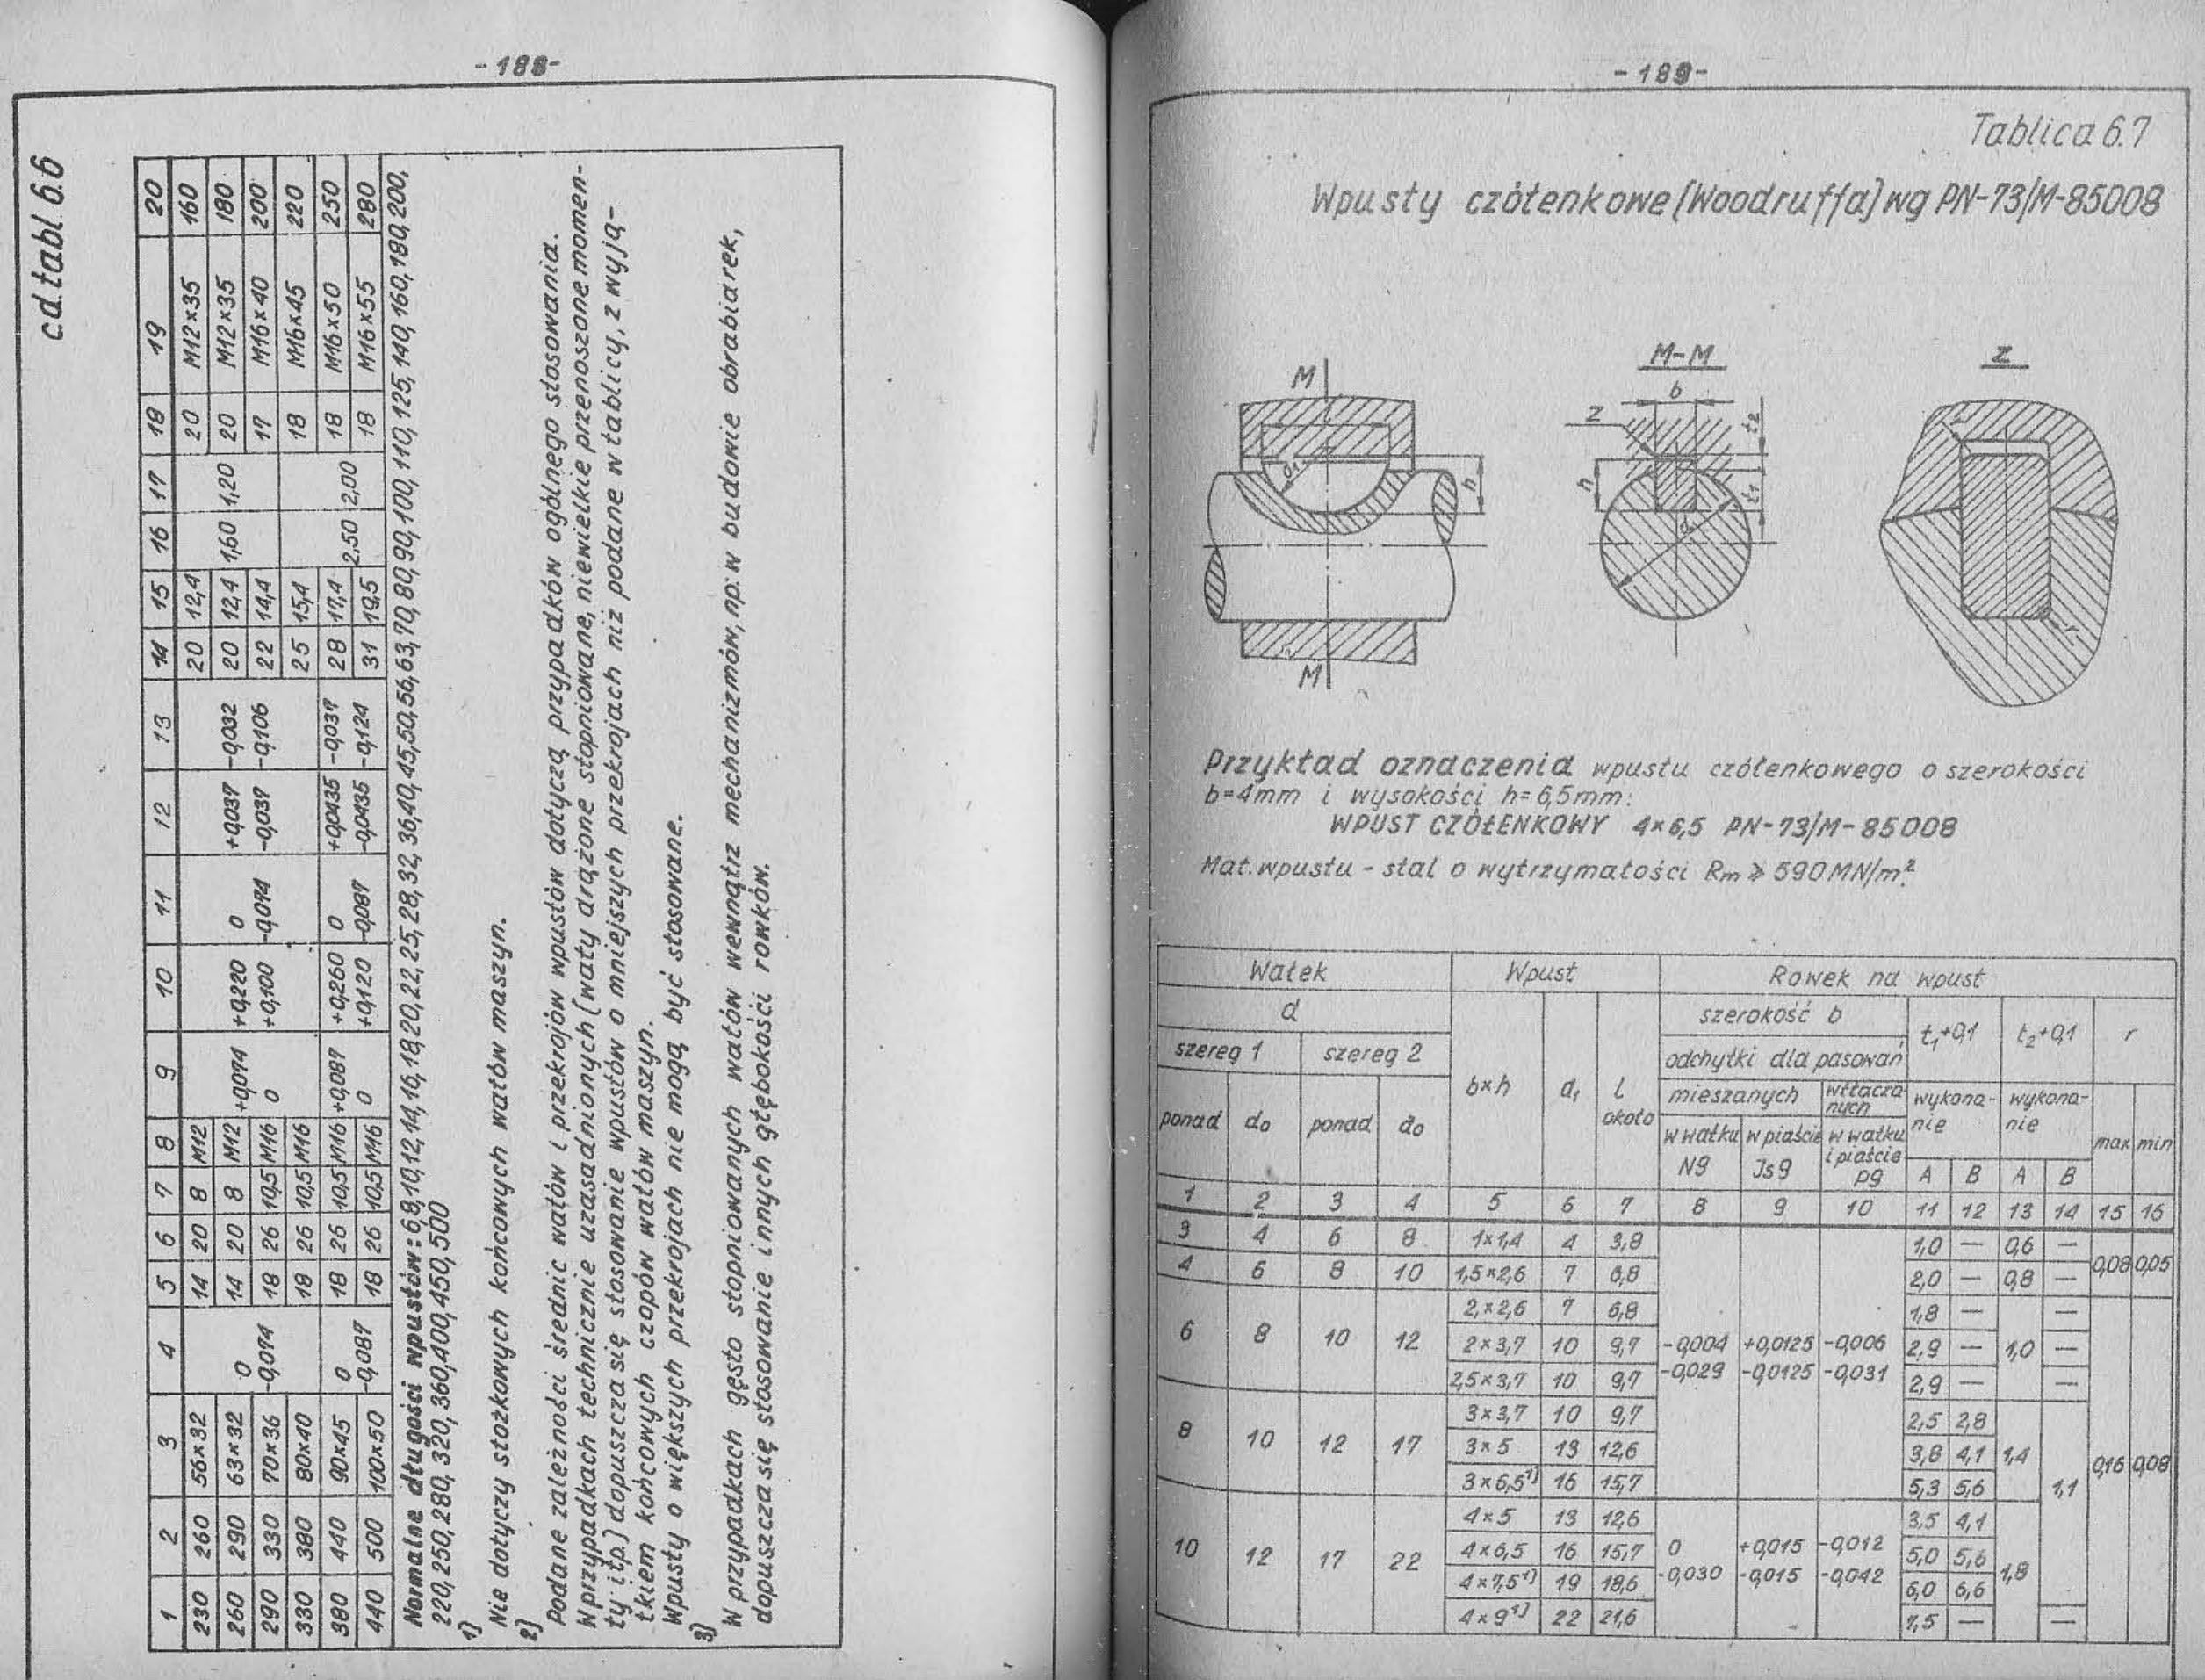 -188-
cd. tabl. 6.6
1 2 3 4 5 6 7 8 9 10 11 12 13 14 15 16 17 18 19 20
230 260 56x32 0 -0,074 14 20 8 M12 +0,074 0 +0,220 +0,100 0 -0,074 +0,037 -0,037 -0,032 -0,106 20 12,4 1,60 1,20 20 M12x35 160
260 290 63x32 14 20 8 M12 20 12,4 20 M12x35 180
290 330 70x36 18 26 10,5 M16 22 14,4 17 M16x40 200
330 380 80x40 18 26 10,5 M16 25 15,4 2,50 2,00 18 M16x45 220
380 440 90x45 0 -0,087 18 26 10,5 M16 +0,087 0 +0,260 +0,120 0 -0,087 +0,0435 -0,0435 -0,037 -0,124 28 17,4 18 M16x50 250
440 500 100x50 18 26 10,5 M16 31 19,5 18 M16x55 280
Normalne długości wpustów: 6,8,10,12,14,16,18,20,22,25,28,32,36,40,45,50,56,63,70,80,90,100,110,125,140,160,180,200,
220,250,280,320,360,400,450,500
1)
Nie dotyczy stożkowych końcowych wałów maszyn.
2)
Podane zależności średnic wałów i przekrojów wpustów dotyczą przypadków ogólnego stosowania.
W przypadkach technicznie uzasadnionych (wały drążone stopniowane, niewielkie przenoszone momen-
ty itp.) dopuszcza się stosowanie wpustów o mniejszych przekrojach niż podane w tablicy, z wyją-
tkiem końcowych czopów wałów maszyn.
Wpusty o większych przekrojach nie mogą być stosowane.
3)
W przypadkach gęsto stopniowanych wałów wewnątrz mechanizmów, np. w budowie obrabiarek,
dopuszcza się stosowanie innych głębokości rowków.
-189-
Tablica 6.7
Wpusty czółenkowe (Woodruffa) wg PN-73/M-85008
M M-M Z
b
Z t2
d1 h h t1
d
r
r
M
Przykład oznaczenia wpustu czółenkowego o szerokości
b=4mm i wysokości h=6,5mm:
WPUST CZÓŁENKOWY 4×6,5 PN-73/M-85008
Mat. wpustu - stal o wytrzymałości Rm ≥ 590 MN/m².
Wałek Wpust Rowek na wpust
d szerokość b t1+0,1 t2+0,1 r
szereg 1 szereg 2 odchyłki dla pasowań
b×h d1 l około mieszanych wtłaczanych wykonanie wykonanie
ponad do ponad do w wałku N9 w piaście Js9 w wałku i piaście P9 A B A B max min
1 2 3 4 5 6 7 8 9 10 11 12 13 14 15 16
3 4 6 8 1×1,4 4 3,8 1,0 — 0,6 — 0,08 0,05
4 6 8 10 1,5×2,6 7 6,8 2,0 — 0,8 —
2×2,6 7 6,8 1,8 — —
6 8 10 12 2×3,7 10 9,7 -0,004 -0,029 +0,0125 -0,0125 -0,006 -0,031 2,9 — 1,0 —
2,5×3,7 10 9,7 2,9 — —
3×3,7 10 9,7 2,5 2,8
8 10 12 17 3×5 13 12,6 3,8 4,1 1,4 0,16 0,08
3×6,5¹) 16 15,7 5,3 5,6 1,1
4×5 13 12,6 3,5 4,1
10 12 17 22 4×6,5 16 15,7 0 -0,030 +0,015 -0,015 -0,012 -0,042 5,0 5,6 1,8
4×7,5¹) 19 18,6 6,0 6,6
4×9¹) 22 21,6 7,5 — —